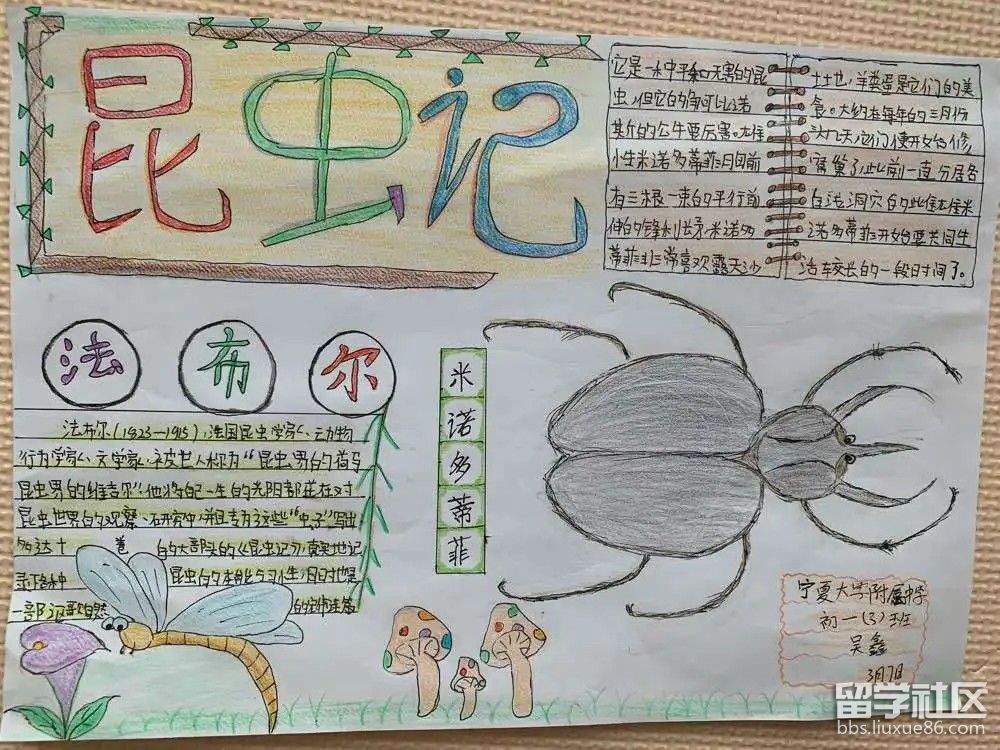 昆虫记
它是一种平和无害的昆
虫,但它的角可以诺
曼的公牛要厉害。在
小生米诺多蒂菲月自前
有三根一束的平行前
伸的锋利长矛,米诺多
蒂菲非常喜欢露天沙
土地,羊粪蛋是它们的美
食。大约在每年的三月份
头几天,它们便开始修
窝筑巢了,此前一直分居各
自浅洞穴的此住在米
诺多蒂菲开始要共同生
活较长的一段时间了。
法布尔
法布尔(1823—1915),法国昆虫学家、动物
行为学家、文学家。被世人称为“昆虫界的荷马
昆虫界的维吉尔”。他将自己一生的光阴都花在对
昆虫世界的观察、研究中,并且专为这些“虫子”写出
多达十卷的大部头的《昆虫记》,真实地记
录下各种昆虫的本能与习性,同时也是
一部讴歌自然
米诺多蒂菲
宁夏大学附属中学
初一(3)班
吴鑫
3月7日
留学社区
bbs.liuxue86.com